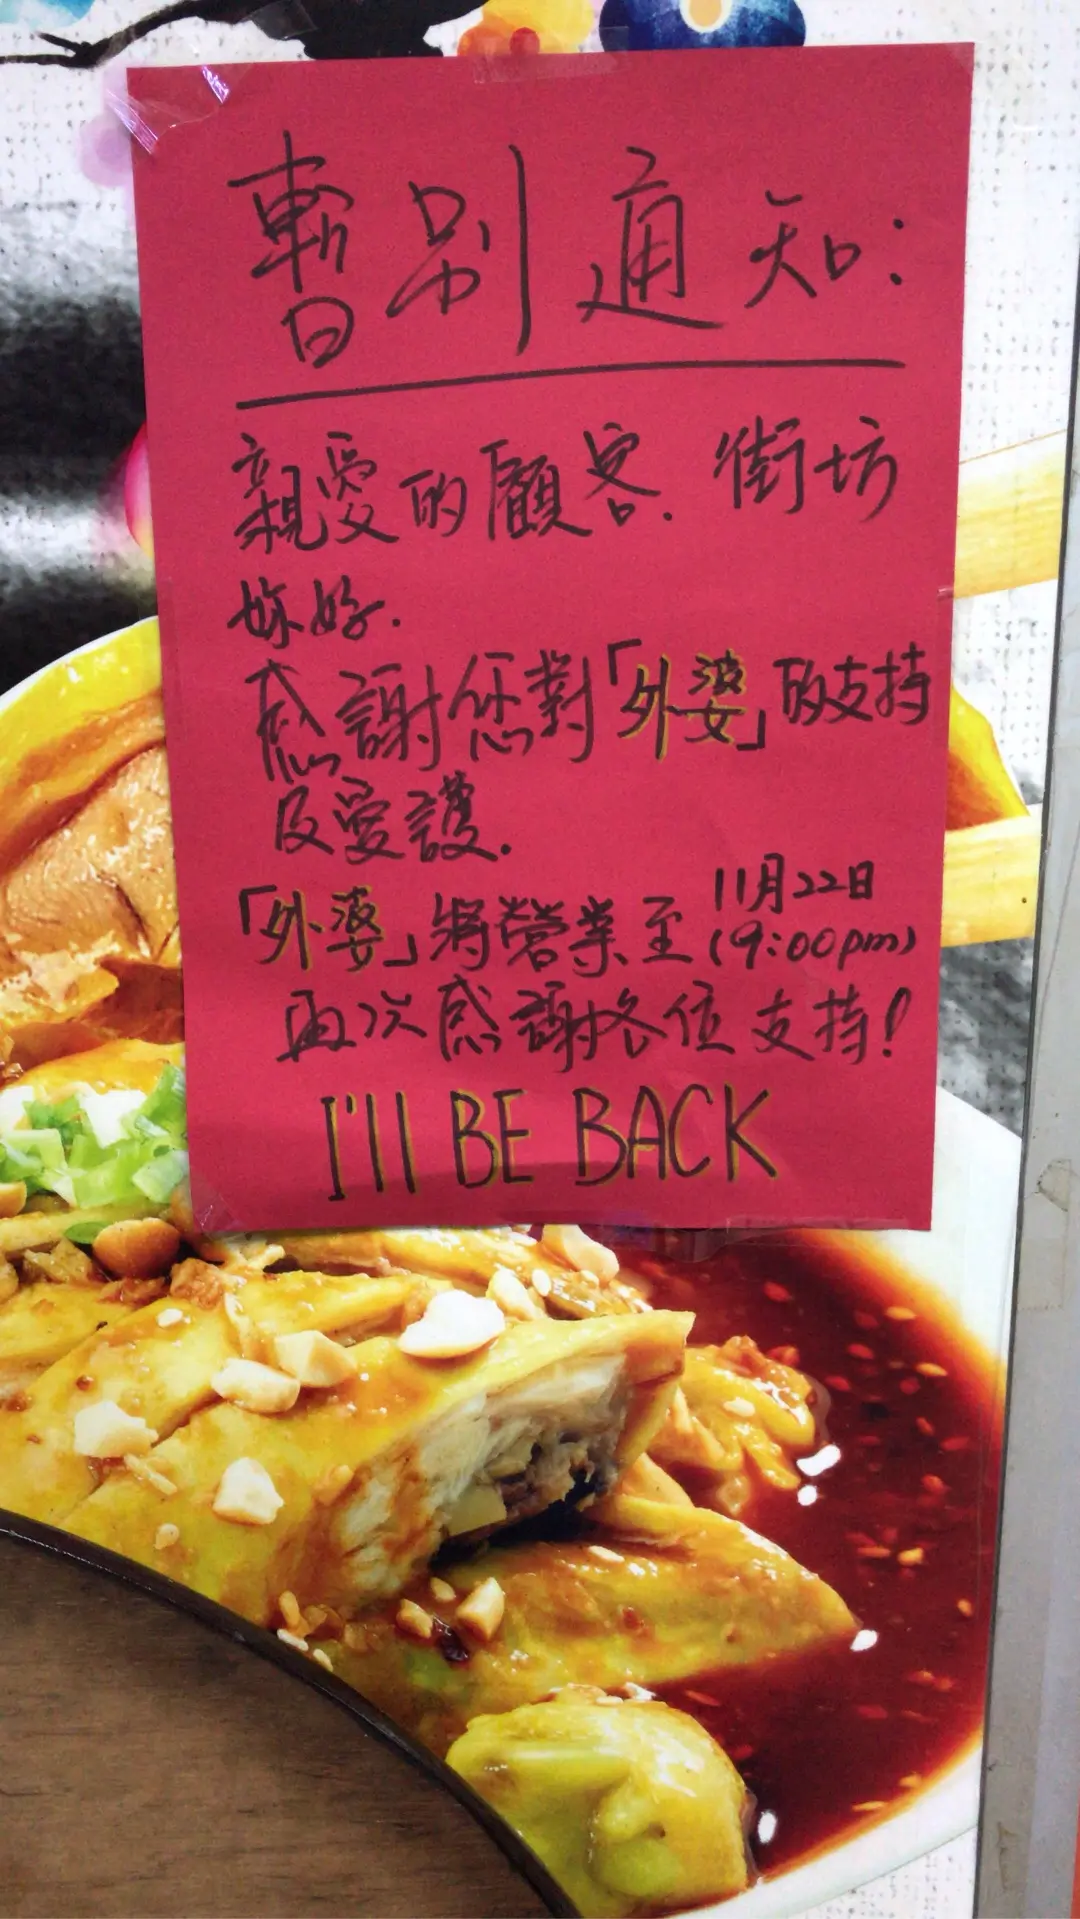 暫別通知:
親愛的顧客. 街坊
妳好.
感謝您對「外婆」的支持
及愛護.
「外婆」將營業至 11月22日
(9:00pm)
再次感謝各位支持!
I'll BE BACK